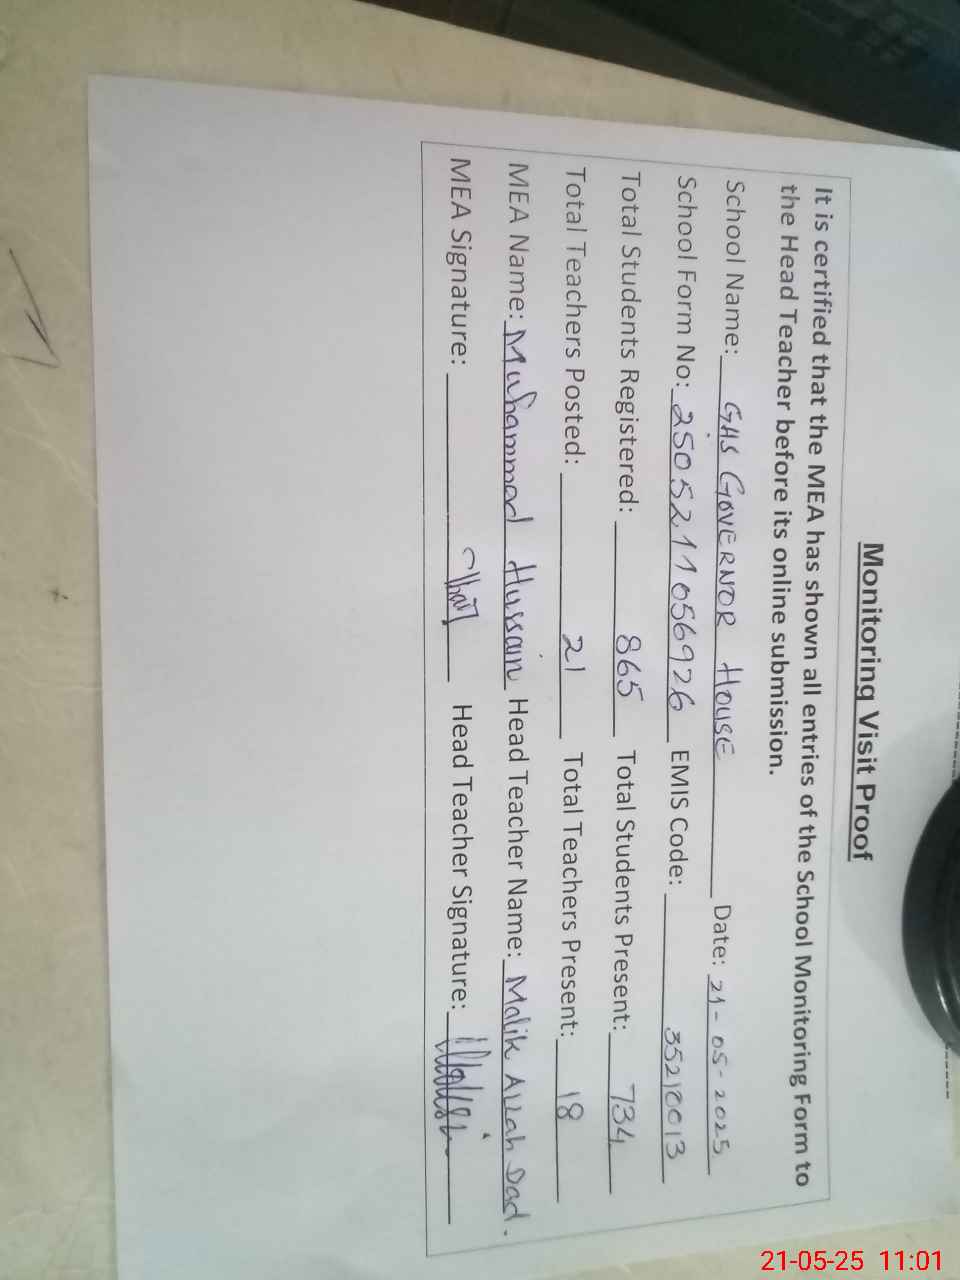 Monitoring Visit Proof
It is certified that the MEA has shown all entries of the School Monitoring Form to
the Head Teacher before its online submission.
School Name: GHS GOVERNOR HOUSE Date: 21-05-2025
School Form No: 25052111056926 EMIS Code: 35210013
Total Students Registered: 865 Total Students Present: 734
Total Teachers Posted: 21 Total Teachers Present: 18
MEA Name: Muhammad Hussain Head Teacher Name: Malik Allah Dad.
MEA Signature: Head Teacher Signature:
21-05-25 11:01